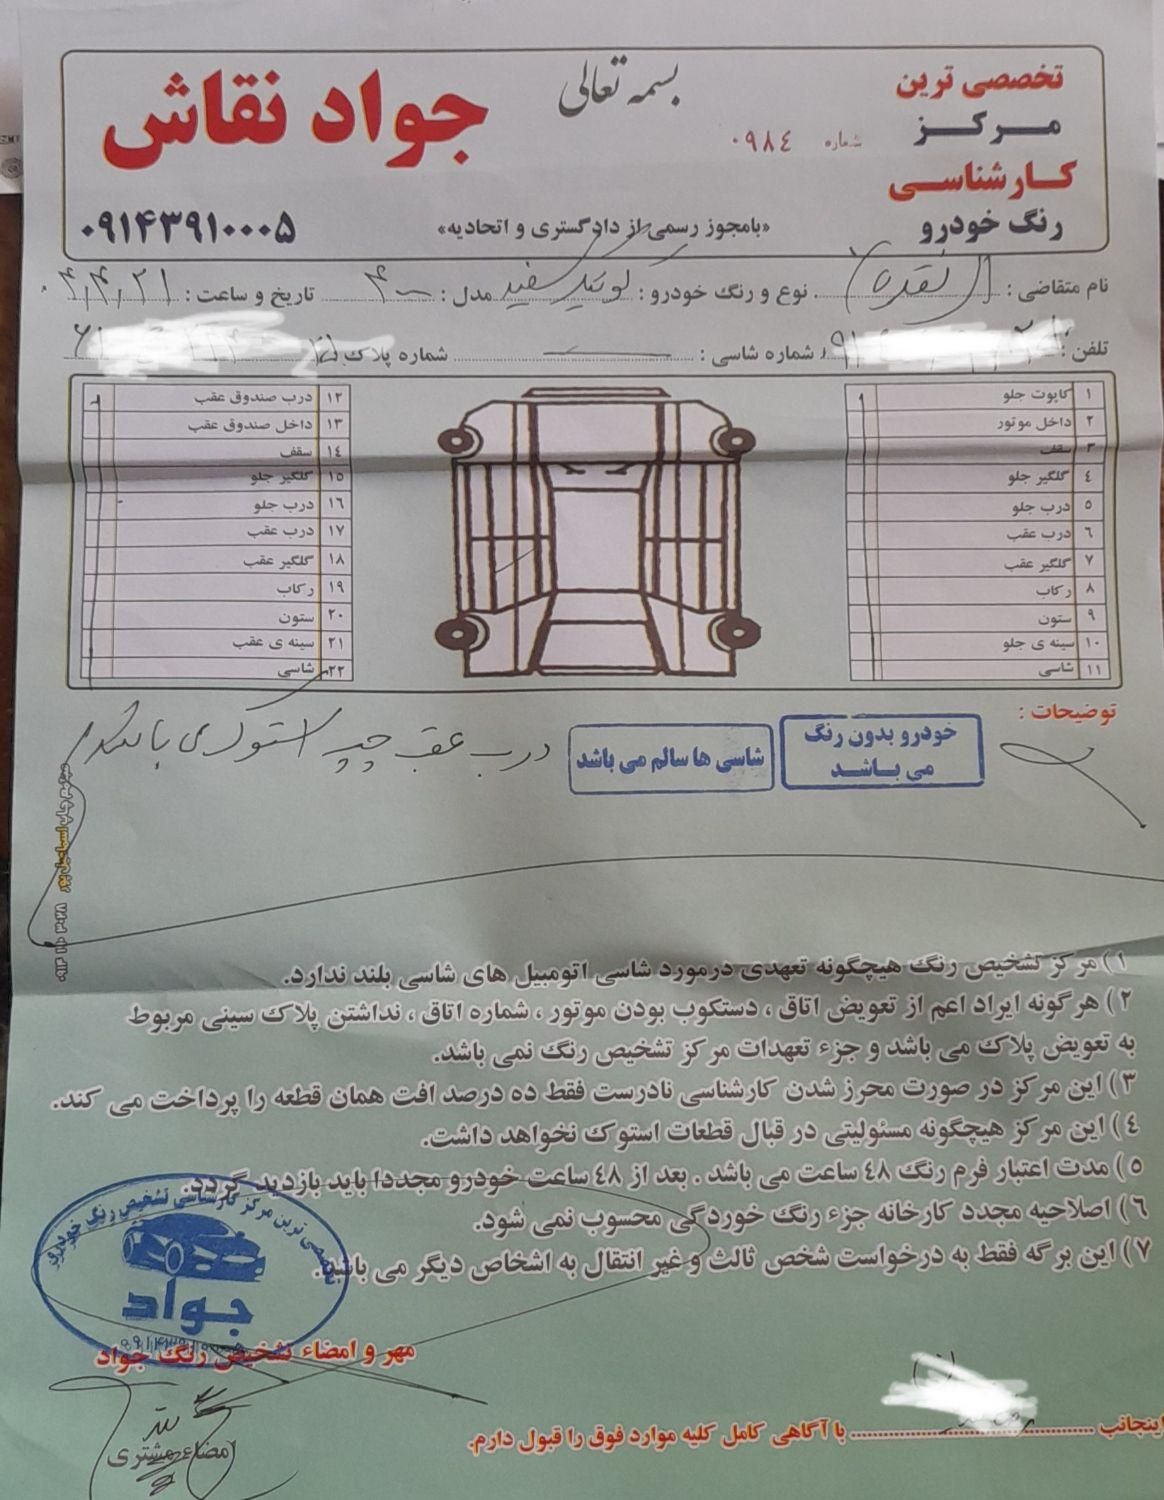 بسمه تعالی
تخصصی ترین
مرکز
کارشناسی
رنگ خودرو
جواد نقاش
شماره ۰۹۸۴
«بامجوز رسمی از دادگستری و اتحادیه»
۰۹۱۴۳۹۱۰۰۰۵
نام متقاضی : نوع و رنگ خودرو : کوییک سفید مدل : ۴۰۰ تاریخ و ساعت : ۰۴,۴,۲۱
تلفن : شماره شاسی : شماره پلاک
۱ کاپوت جلو
۲ داخل موتور
۳ سقف
٤ گلگیر جلو
۵ درب جلو
٦ درب عقب
۷ گلگیر عقب
۸ رکاب
۹ ستون
۱۰ سینه ی جلو
۱۱ شاسی
۱۲ درب صندوق عقب
۱۳ داخل صندوق عقب
١٤ سقف
۱۵ گلگیر جلو
۱٦ درب جلو
۱۷ درب عقب
۱۸ گلگیر عقب
۱۹ رکاب
۲۰ ستون
۲۱ سینه ی عقب
۲۲ شاسی
توضیحات :
خودرو بدون رنگ
می باشد
شاسی ها سالم می باشد
درب عقب چپ استوک می باشد
۱) مرکز تشخیص رنگ هیچگونه تعهدی درمورد شاسی اتومبیل های شاسی بلند ندارد.
۲) هرگونه ایراد اعم از تعویض اتاق ، دستکوب بودن موتور ، شماره اتاق ، نداشتن پلاک سینی مربوط
به تعویض پلاک می باشد و جزء تعهدات مرکز تشخیص رنگ نمی باشد.
۳) این مرکز در صورت محرز شدن کارشناسی نادرست فقط ده درصد افت همان قطعه را پرداخت می کند.
٤) این مرکز هیچگونه مسئولیتی در قبال قطعات استوک نخواهد داشت.
۵) مدت اعتبار فرم رنگ ٤٨ ساعت می باشد . بعد از ٤٨ ساعت خودرو مجددا باید بازدید گردد.
٦) اصلاحیه مجدد کارخانه جزء رنگ خوردگی محسوب نمی شود.
۷) این برگه فقط به درخواست شخص ثالث و غیر انتقال به اشخاص دیگر می باشد.
مرکز کارشناسی تشخیص رنگ خودرو
جواد
مهر و امضاء تشخیص رنگ جواد
امضاء مشتری
اینجانب با آگاهی کامل کلیه موارد فوق را قبول دارم.